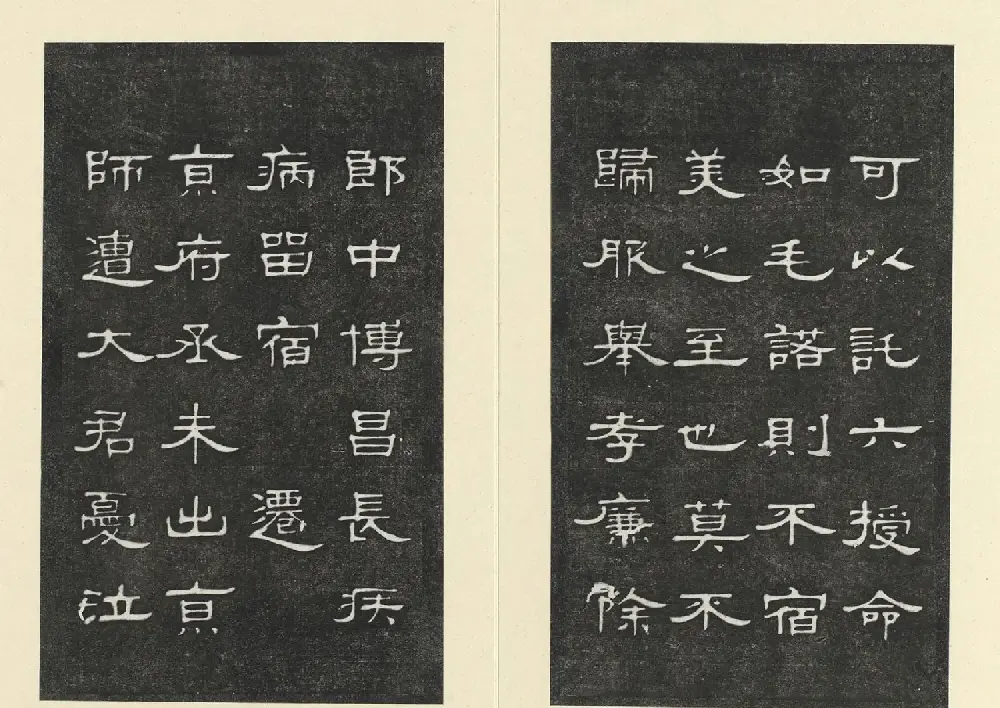 可以託六授命
如毛諾則不宿
美之至也莫不
歸服舉孝廉除
郎中博昌長疾
病留宿遷
京府丞未出京
師遭大君憂泣